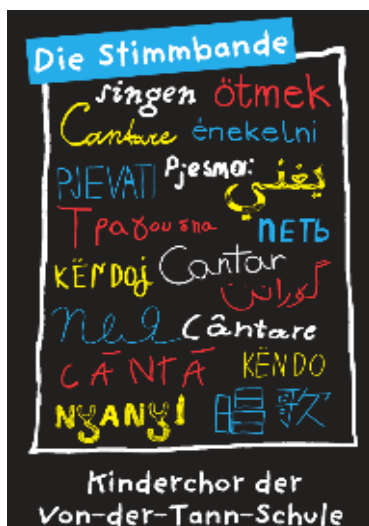 Die Stimmbande
singen ötmek
Cantare énekelni
PJEVATI Pjesma: يغني
Τραγουδπα петь
KËNDOJ Cantar گورانن
Cântare
CĀNTĀ KËNDO
NYANYI 唱歌
Kinderchor der
Von-der-Tann-Schule